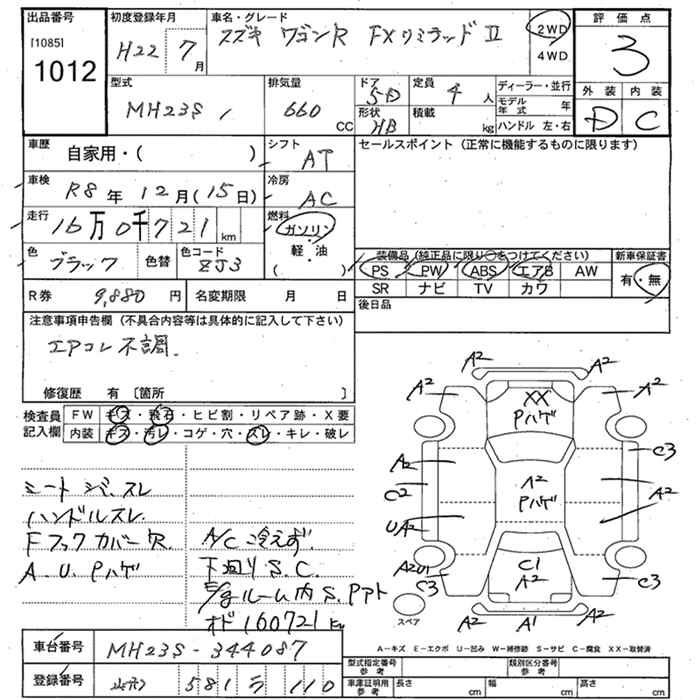 出品番号
[1085]
1012
初度登録年月
H22 7月
車名・グレード
スズキ ワゴンR FXリミテッドⅡ
2WD
4WD
評価点
3
外装 内装
D C
型式
MH23S
排気量
660 CC
ドア
5D
形状
HB
定員
4人
積載
kg
ディーラー・並行
モデル年式 年
ハンドル 左・右
車歴
自家用・( )
シフト
AT
セールスポイント (正常に機能するものに限ります)
車検
R8年 12月(15日)
冷房
AC
走行
16万0千721 km
燃料
ガソリン
軽・油
( )
色
ブラック
色替
色コード
ZJ3
装備品 (純正品に限り○をつけてください)
PS PW ABS エアB AW
SR ナビ TV カワ
新車保証書
有・無
R券 9,880円
名変期限 月 日
後日品
注意事項申告欄 (不具合内容等は具体的に記入して下さい)
エアコン不調.
修復歴 有 [箇所 ]
検査員記入欄
FW キズ・飛石・ヒビ割・リペア跡・X要
内装 キズ・汚レ・コゲ・穴・スレ・キレ・破レ
シート スレ
ハンドルスレ
Fフックカバー欠.
A.U.Pハゲ
A/C冷えず.
下回りS.C.
E/gルーム内S.
オド160721km
A2 A2
A2 XX A2
Pハゲ
A2 C3
C2 A2 A2
Pハゲ
UA2
C1
A2
C3 C3
A2 A1 A2
スペア
A－キズ E－エクボ U－凹み W－補修跡 S－サビ C－腐食 XX－取替済
車台番号 MH23S-344087
登録番号 581 ラ 110
型式指定番号 参考
類別区分番号 参考
車庫証明用 参考
長さ cm 幅 cm 高さ cm